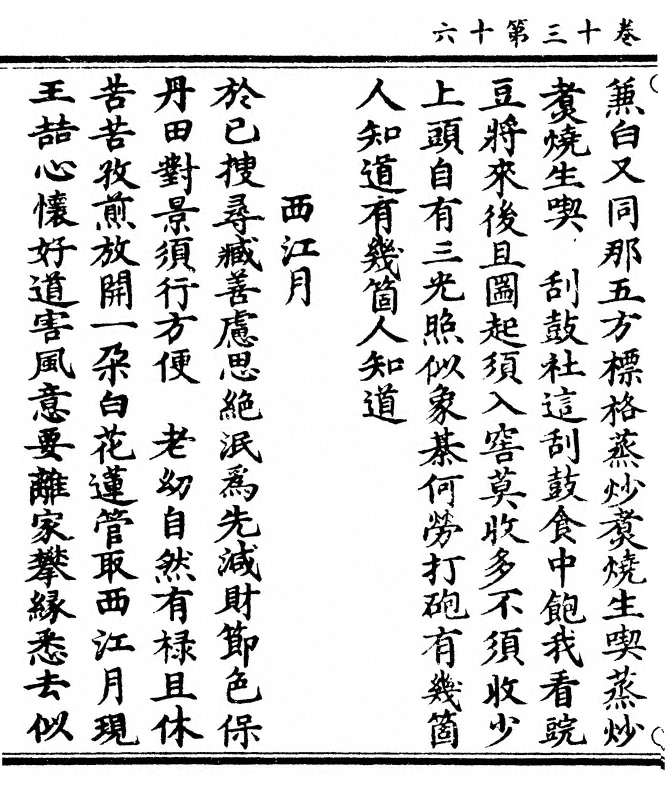 卷十三第十六
蒹白又同那五方標格蒸炒煑燒生喫蒸炒
煑燒生喫　刮鼓社這刮鼓食中飽我看豌
豆將來後且圖起須入窖莫收多不須收少
上頭自有三光照似象棊何勞打砲有幾箇
人知道有幾箇人知道
西江月
於已搜尋臧善慮思絶泯爲先減財節色保
丹田對景須行方便　老幼自然有祿且休
苦苦孜煎放開一朶白花蓮管取西江月現
王喆心懷好道害風意要離家攀緣悉去似